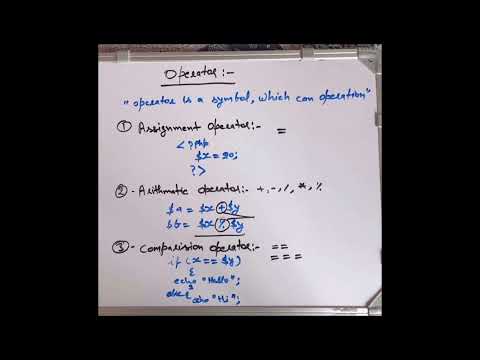 Operator:-
"operator is a symbol, which can operation"
① Assignment operator:- =
<?php
$x=20;
?>
② - Arithmatic operator:- +, -, /, *, %
$a = $x + $y
$b = $x % $y
③ - Comparision operator:- ==
===
if (x == $y)
{
echo "Hello";
}
else{
echo "Hi";